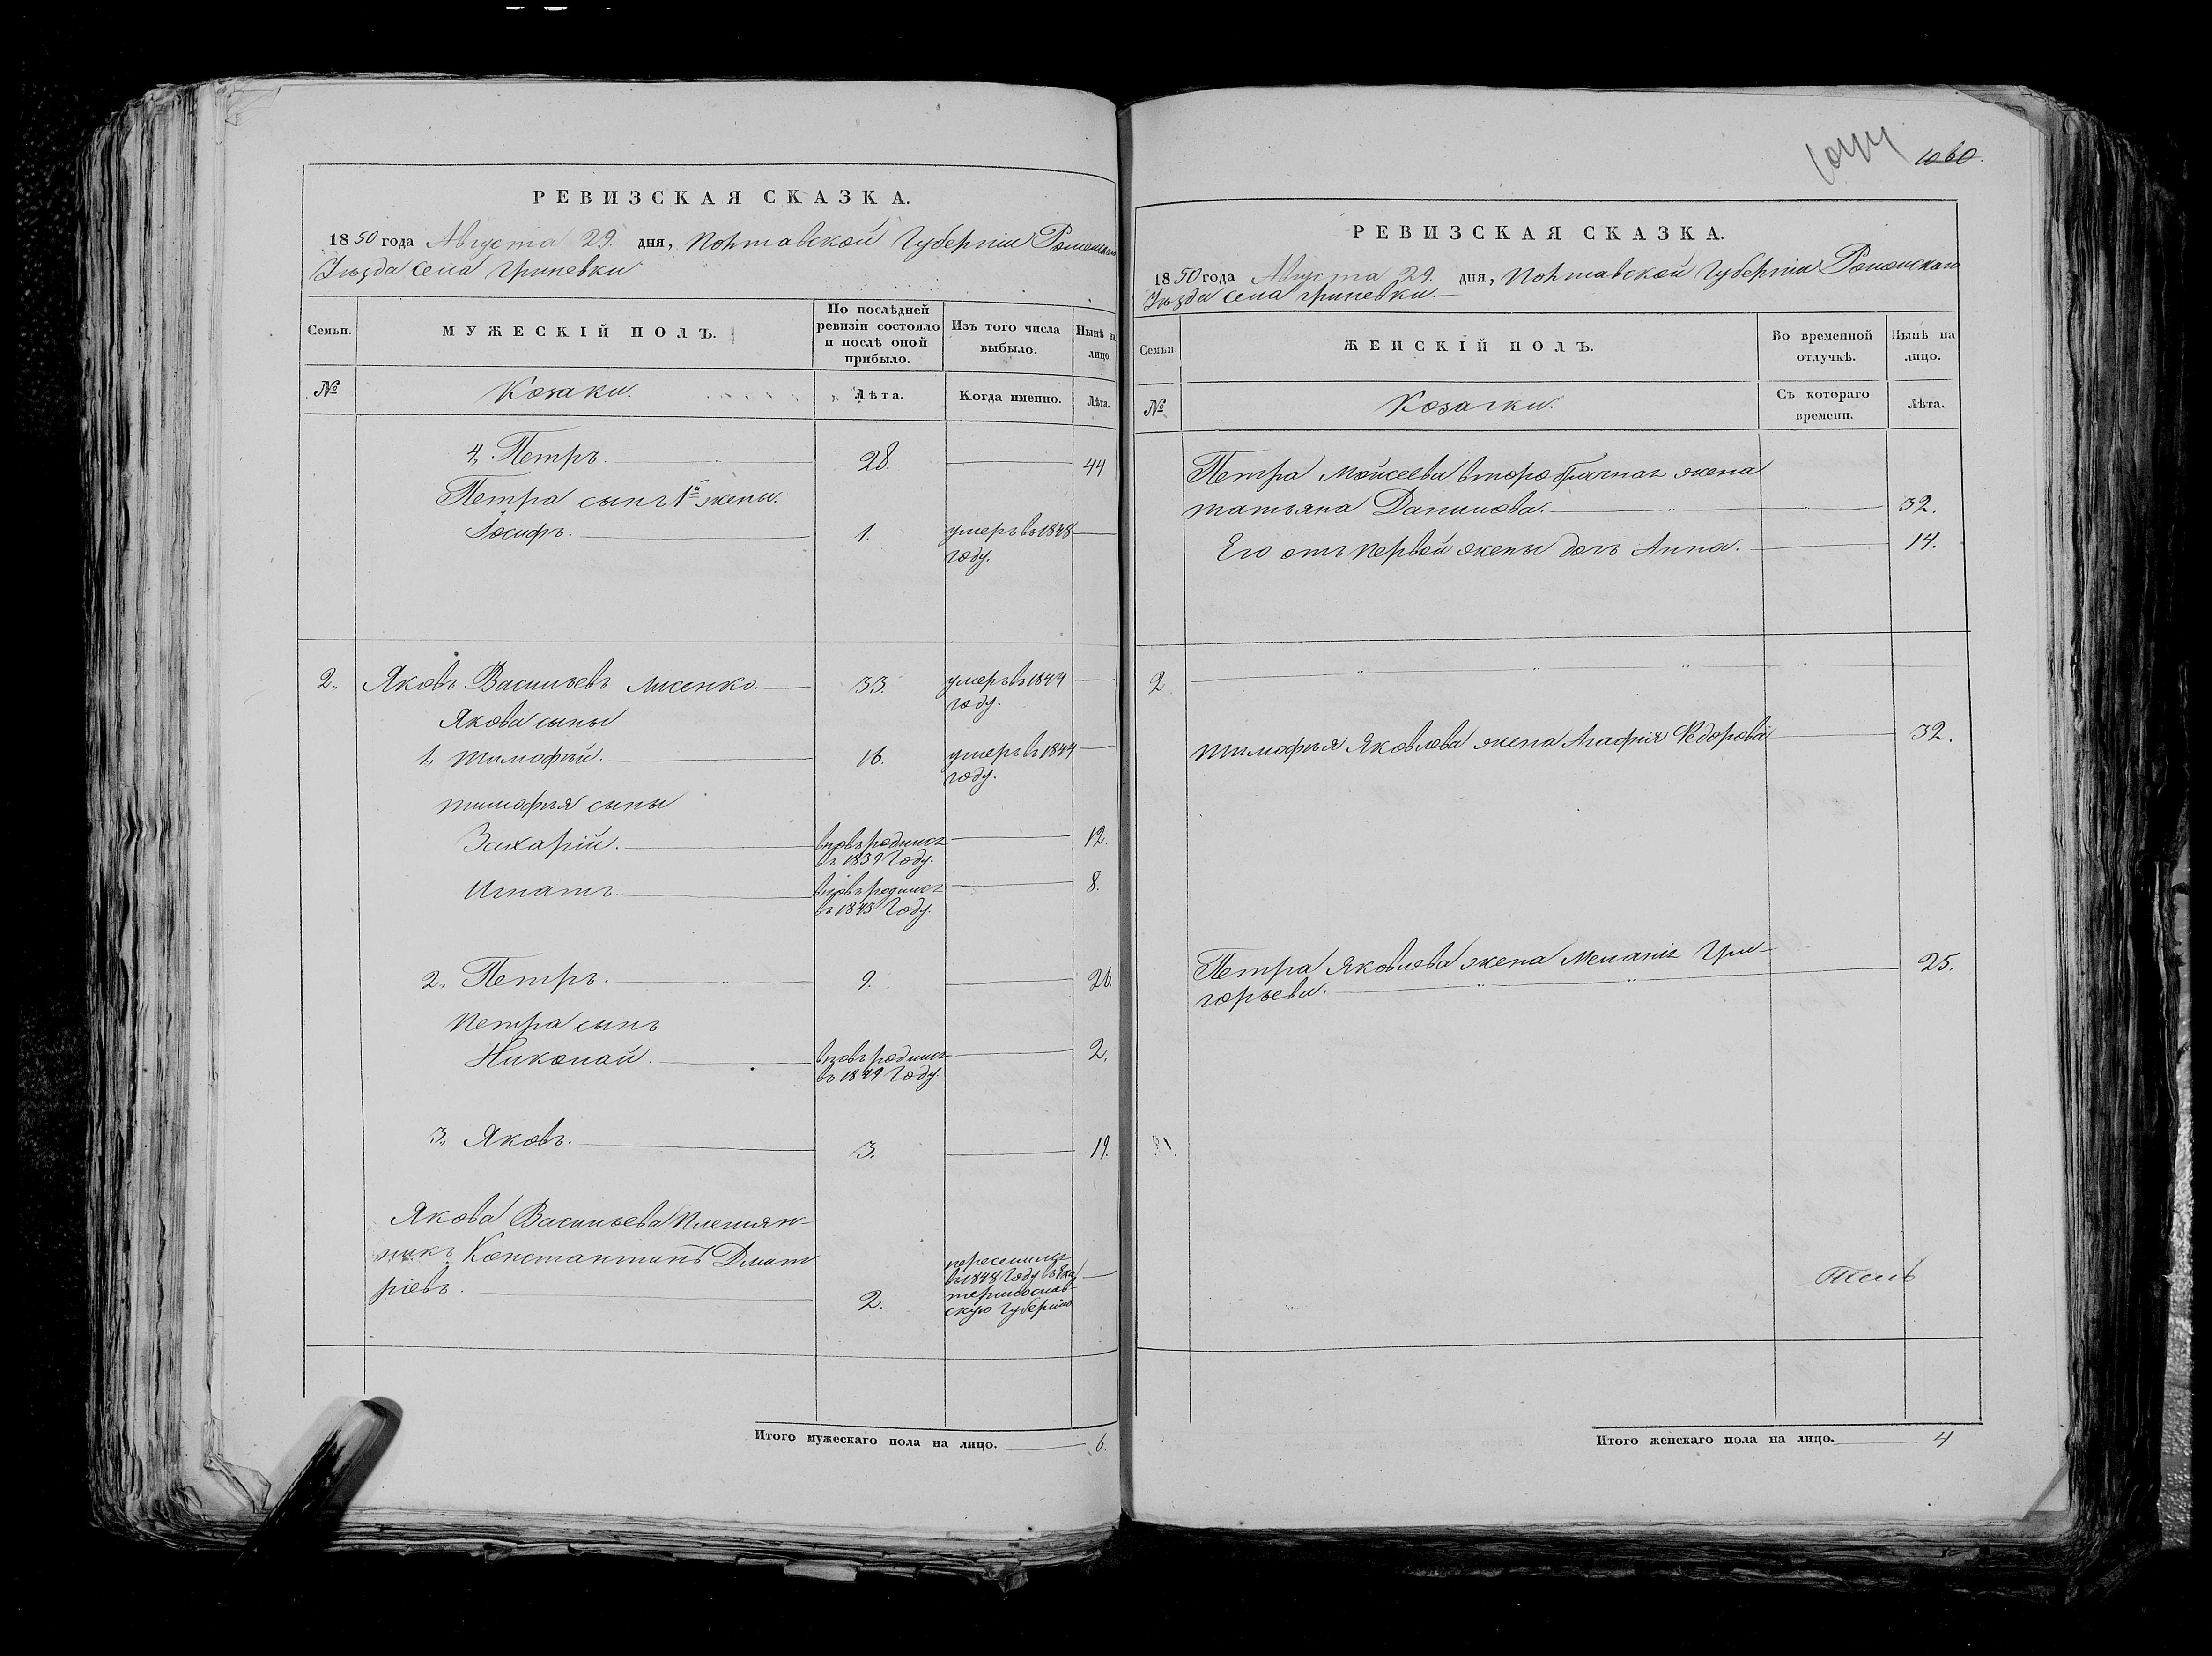 РЕВИЗСКАЯ СКАЗКА.
1850 года Августа 29. дня, Полтавской Губернии Роменскаго
Уѣзда села Гриневки
Семьи.
МУЖЕСКІЙ ПОЛЪ.
По послѣдней
ревизіи состояло
и послѣ оной
прибыло.
Изъ того числа
выбыло.
Нынѣ на
лицо.
№
Козаки.
Лѣта.
Когда именно.
Лѣта.
4, Петръ. 28. 44
Петра сынъ 1й жены.
Іосифъ. 1. умеръ въ 1848
году.
2. Яковъ Васильевъ Лисенко. 33. умеръ въ 1849
году.
Якова сыны
1, Тимофѣй. 16. умеръ въ 1849
году.
Тимофѣя сыны
Захарій. вновь родился 12.
въ 1839 году.
Игнатъ. вновь родился 8.
въ 1843 году.
2, Петръ. 9. 26.
Петра сынъ
Николай. вновь родился 2.
въ 1849 году
3, Яковъ. 3. 19.
Якова Васильева племян-
никъ Константинъ Дмит
ріевъ. 2. переселился
въ 1848 году въ Ека
теринослав-
скую Губернію
Итого мужескаго пола на лицо. 6.
1060.
РЕВИЗСКАЯ СКАЗКА.
1850 года Августа 29 дня, Полтавской Губерніи Роменскаго
Уѣзда села Гриневки.
Семьи
ЖЕНСКІЙ ПОЛЪ.
Во временной
отлучкѣ.
Нынѣ на
лицо.
№
Козачки.
Съ котораго
времени.
Лѣта.
Петра Мойсеева второбрачная жена
Татьяна Данилова. 32.
Его отъ первой жены дочь Анна. 14.
2
Тимофѣя Яковлева жена Агафія Федорова 32.
Петра Яковлева жена Меланія Гри-
горьева. 25.
Итого женскаго пола на лицо. 4